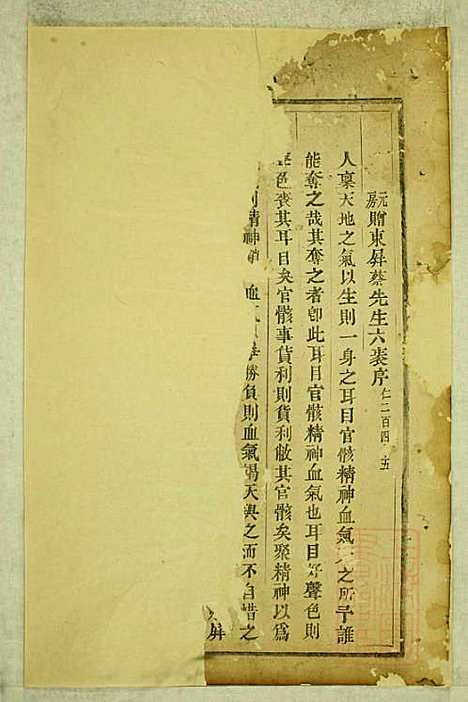 元房贈東屏蔡先生六袠序 仁二百四 五
人稟天地之氣以生則一身之耳目官骸精神血氣 之所予誰
能奪之哉其奪之者卽此耳目官骸精神血氣也耳目好聲色則
聲色喪其耳目矣官骸事貨利則貨利敝其官骸矣聚精神以爲
則精神 血 勝負則血氣竭天與之而不自惜之
屏